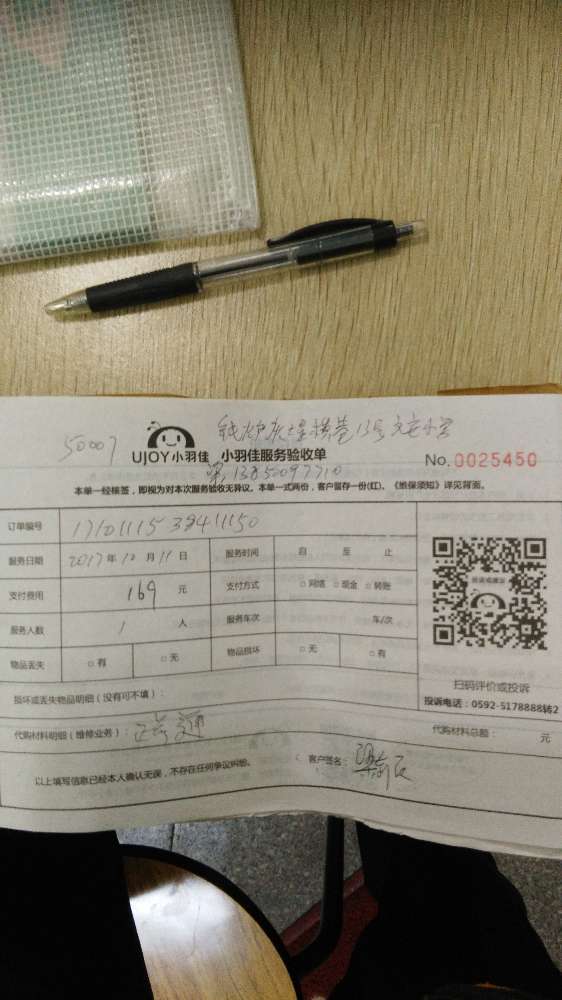 50007
UJOY小羽佳 小羽佳服务验收单
13850097710
No.0025450
本单一经核签，即视为对本次服务验收无异议。本单一式两份，客户留存一份(红)。《维保须知》详见背面。
订单编号
服务日期 2017年10月11日 服务时间 自 至 止
支付费用 169 元 支付方式 □网络 □现金 □转账
服务人数 1 人 服务车次 车/次
物品丢失 □有 □无 物品损坏 □无 □有
扫码评价或投诉
投诉电话：0592-5178888转2
损坏或丢失物品明细（没有可不填）：
代购材料明细（维修业务）： 代购材料总额： 元
以上填写信息已经本人确认无误，不存在任何争议纠纷。 客户签名：